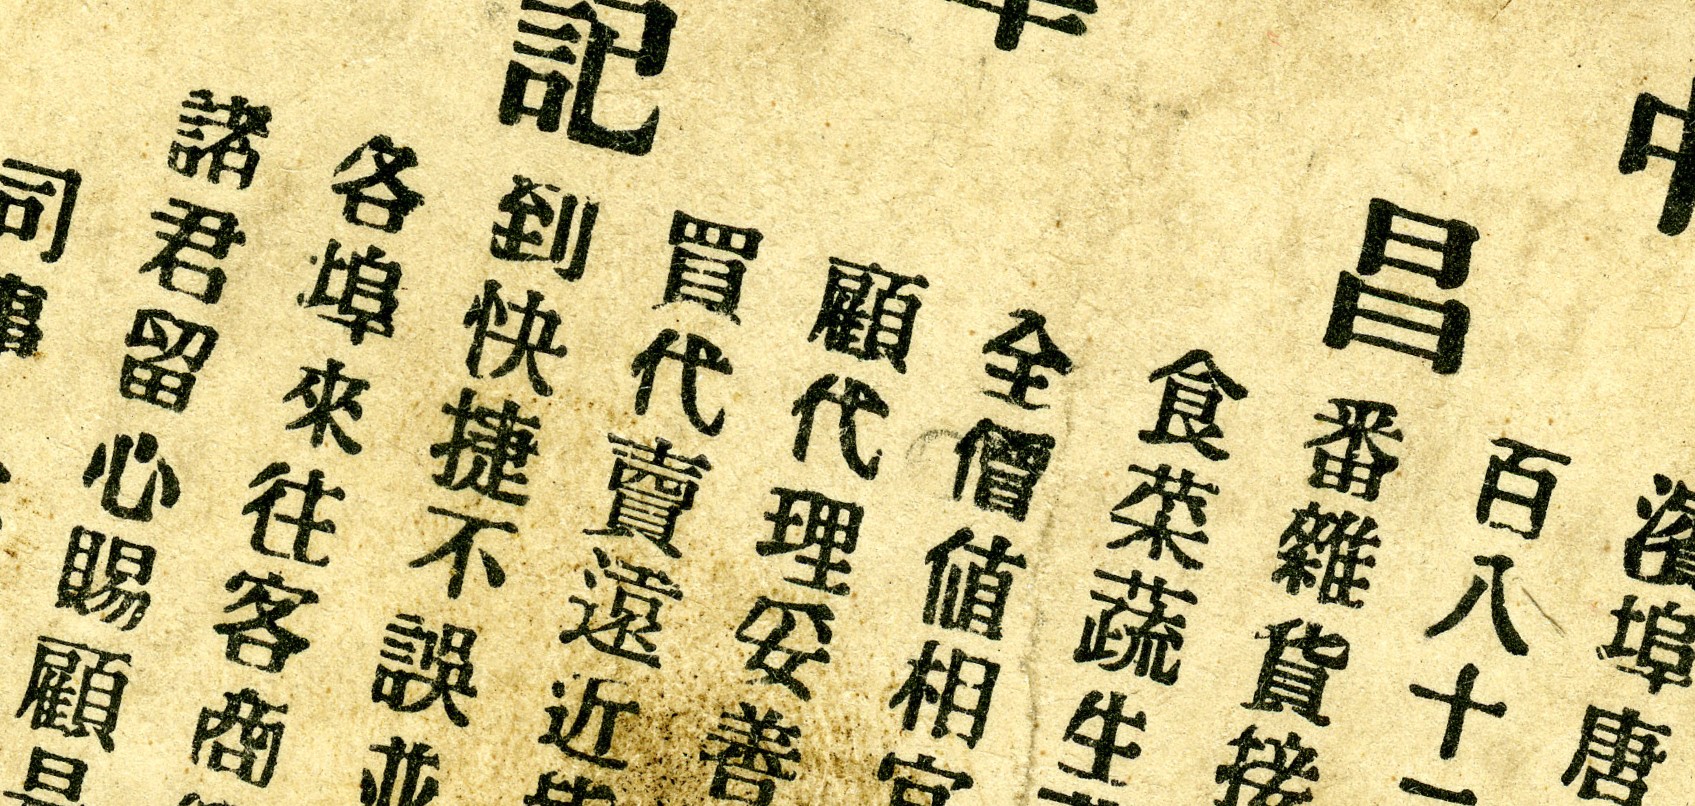 中
濱埠唐
百八十
昌番雜貨接
食菜蔬生
全價値相宜
顧代理妥善
買代賣遠近
記到快捷不誤並
各埠來往客商
諸君留心賜顧是
司事